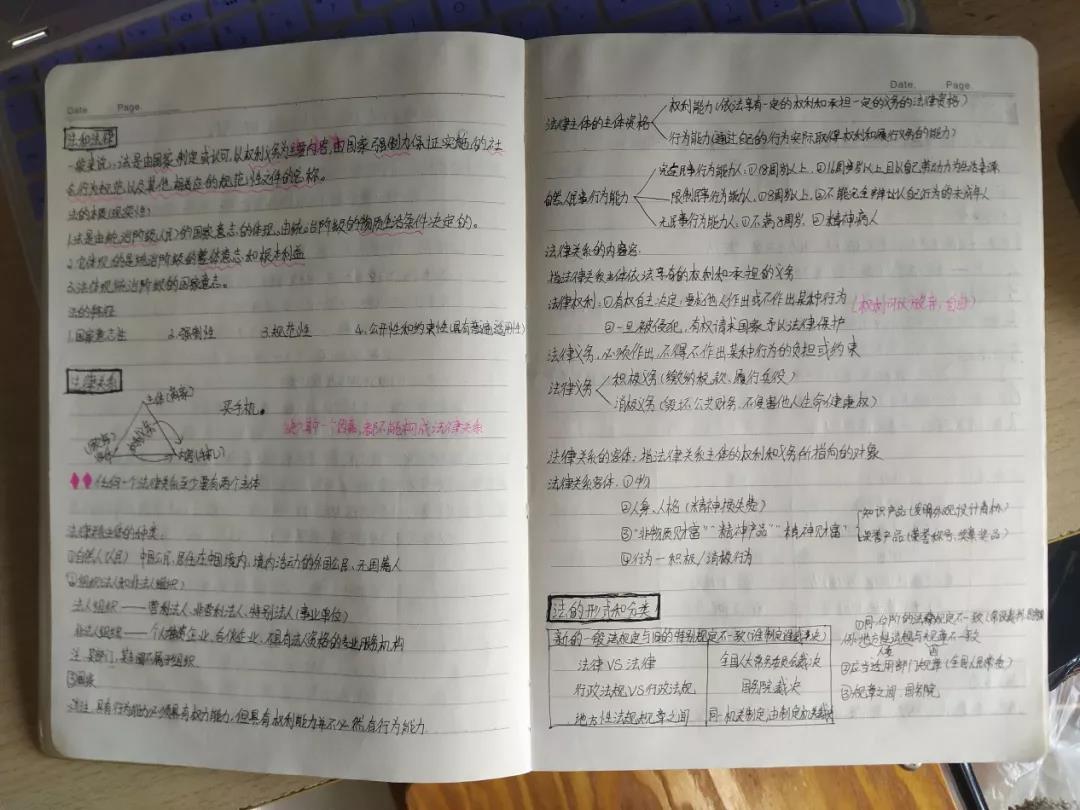 Date. Page.
法和法律
一般来说，法是由国家制定或认可，以权利义务为主要内容，由国家强制力保证实施的社
会行为规范以及其他相应的规范性文件的总称。
法的本质（现实性）
1.法是由统治阶级（人民）的国家意志的体现。由统治阶级的物质生活条件决定的。
2.它体现的是统治阶级的整体意志和根本利益
3.法体现统治阶级的国家意志。
法的特征
1.国家意志性 2.强制性 3.规范性 4.公开性和约束性（具有普遍适用性）
法律关系
主体（商家）
买手机。
缺其中一个因素，都不能构成法律关系
权利义务
客体
内容（手机）
任何一个法律关系至少要有两个主体
法律关系主体的种类：
①自然人（公民） 中国公民，居住在中国境内、境内活动的外国公民、无国籍人
②组织（法人和非法人组织）
法人组织——营利法人、非营利法人、特别法人（事业单位）
非法人组织——个人独资企业、合伙企业、不具有法人资格的专业服务机构
注：某部门、某车间不属于组织
③国家
注：具有行为能力必须具有权利能力，但具有权利能力并不必然有行为能力
Date. Page.
法律主体的主体资格
权利能力（依法享有一定的权利和承担一定的义务的法律资格）
行为能力（通过自己的行为实际取得权利和履行义务的能力）
自然人民事行为能力
完全民事行为能力人：①18周岁以上 ②16周岁以上且以自己劳动力为生活来源
限制民事行为能力人：①8周岁以上 ②不能完全辨认自己行为的未成年人
无民事行为能力人：①不满8周岁 ②精神病人
法律关系的内容：
指法律关系主体依法享有的权利和承担的义务
法律权利：①有权自主决定，要求他人作出或不作出某种行为（权利可以放弃，自由）
②一旦被侵犯，有权请求国家予以法律保护
法律义务，必须作出，不得不作出某种行为的负担或约束
法律义务
积极义务（缴纳税款、履行兵役）
消极义务（毁坏公共财务、不侵害他人生命健康权）
法律关系的客体：指法律关系主体的权利和义务所指向的对象
法律关系客体：①物
②人身、人格（精神损失费）
③“非物质财富”“精神产品”“精神财富”
知识产品（发明外观设计商标）
荣誉产品（荣誉称号、奖章奖品）
④行为—积极/消极行为
法的形式和分类
新的一般法规定与旧的特别规定不一致（谁制定谁裁决）
法律VS法律 全国人大常务委员会裁决
行政法规VS行政法规 国务院裁决
地方性法规规章之间 同一机关制定，由制定机关裁决
①同一位阶的法律规定不一致
例：地方性法规与规章不一致
②应当适用部门规章（全国人民常委）
③规章之间：国务院